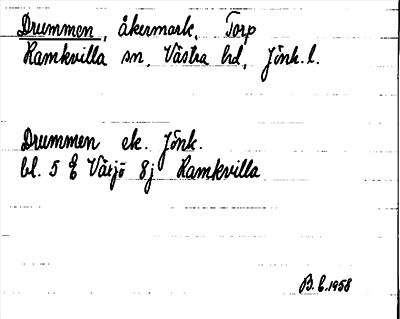 Drummen, åkermark, Torp
Ramkvilla sn, Västra hd, Jönk. l.
Drummen ek. Jönk.
bl. 5 E Växjö 8j Ramkvilla
B.E.1958